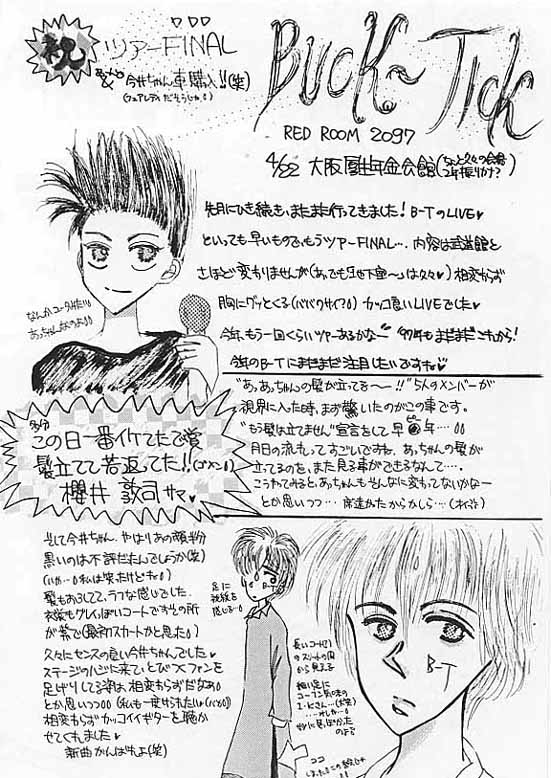 祝
ツアーFINAL
& 今井ちゃん車購入!!(笑)
BUCK~TICK
RED ROOM 2097
4/22 大阪厚生年金会館
先月にひき続き、またまた行ってきました!B-TのLIVE♥
といっても早いもので、もうツアーFINAL…。内容は武道館と
さほど変わりませんが 相変わらず
胸にグッとくる カッコ良いLIVEでした♥
今年、もう一回くらいツアーあるかな~ '97年もまだまだこれから!
今年のB-Tにまだまだ注目したいですね♥
なんかユータみたい
あっちゃんなのよ
多分
この日一番イケてたで賞
髪立てて若返ってた!!(ゴメン)
櫻井敦司サマ♥
"あっ、あっちゃんの髪が立ってる~!!" 5人のメンバーが
視界に入った時、まず驚いたのがこの事です。
"もう髪は立てません"宣言をして早 年…
月日の流れってすごいですね。あっちゃんの髪が
立ってるのを、また見る事ができるなんて…。
こうやってみると、あっちゃんもそんなに変わってないかな~
とか思いつつ…
そして今井ちゃん。やはりあの顔半分
黒いのは不評だったんでしょうか(笑)
髪もおろしてて、ラフな感じでした。
衣装もグレイっぽいコートですその所
が
久々にセンスの良い今井ちゃんでした♥
ステージのハジに来て、とびつくファンを
足げりしてる姿は、相変わらずだなあ
とか思いつつ
相変わらずカッコイイギターを聴か
せてくれました♥
新曲がんばれよ(笑)
足に
視線を
感じる…
長いコート
のスリットの間
から見える
細い足に
コーフン気味の
I・ヒさん…
B-T
ココ